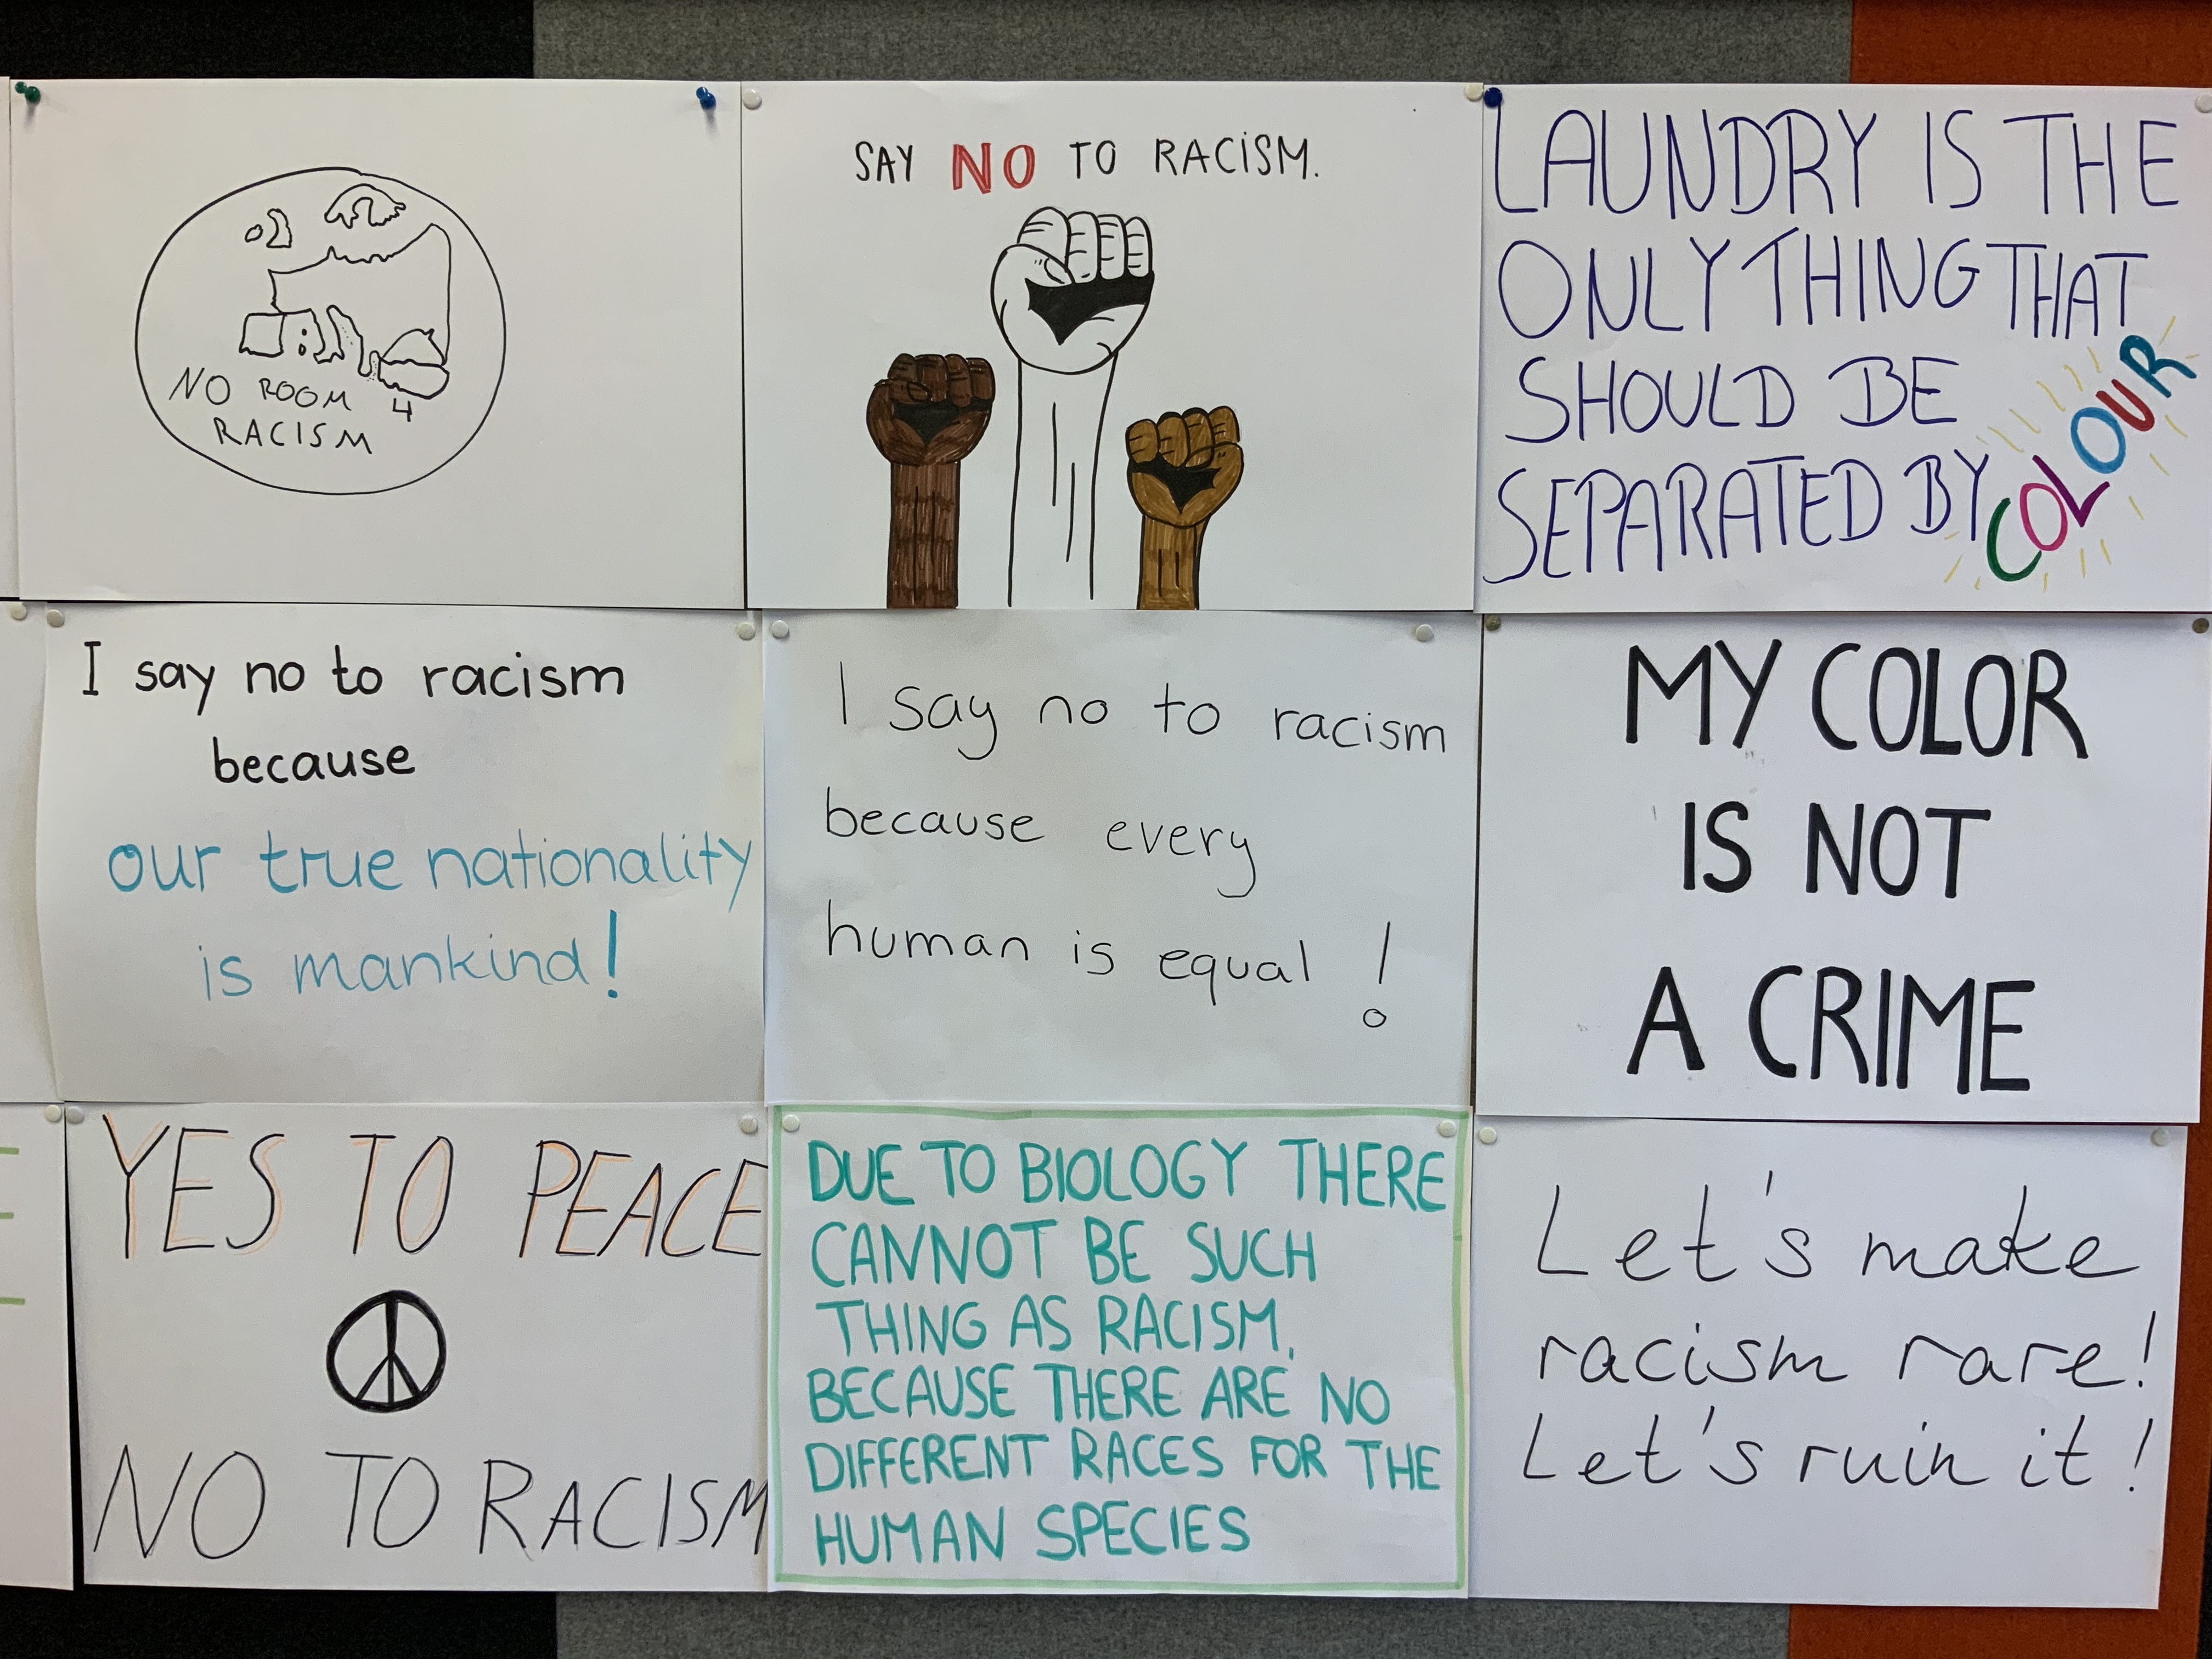 NO ROOM 4
RACISM
SAY NO TO RACISM.
LAUNDRY IS THE
ONLY THING THAT
SHOULD BE
SEPARATED BY COLOUR
I say no to racism
because
our true nationality
is mankind!
I say no to racism
because every
human is equal!
MY COLOR
IS NOT
A CRIME
YES TO PEACE
NO TO RACISM
DUE TO BIOLOGY THERE
CANNOT BE SUCH
THING AS RACISM,
BECAUSE THERE ARE NO
DIFFERENT RACES FOR THE
HUMAN SPECIES
Let's make
racism rare!
Let's ruin it!